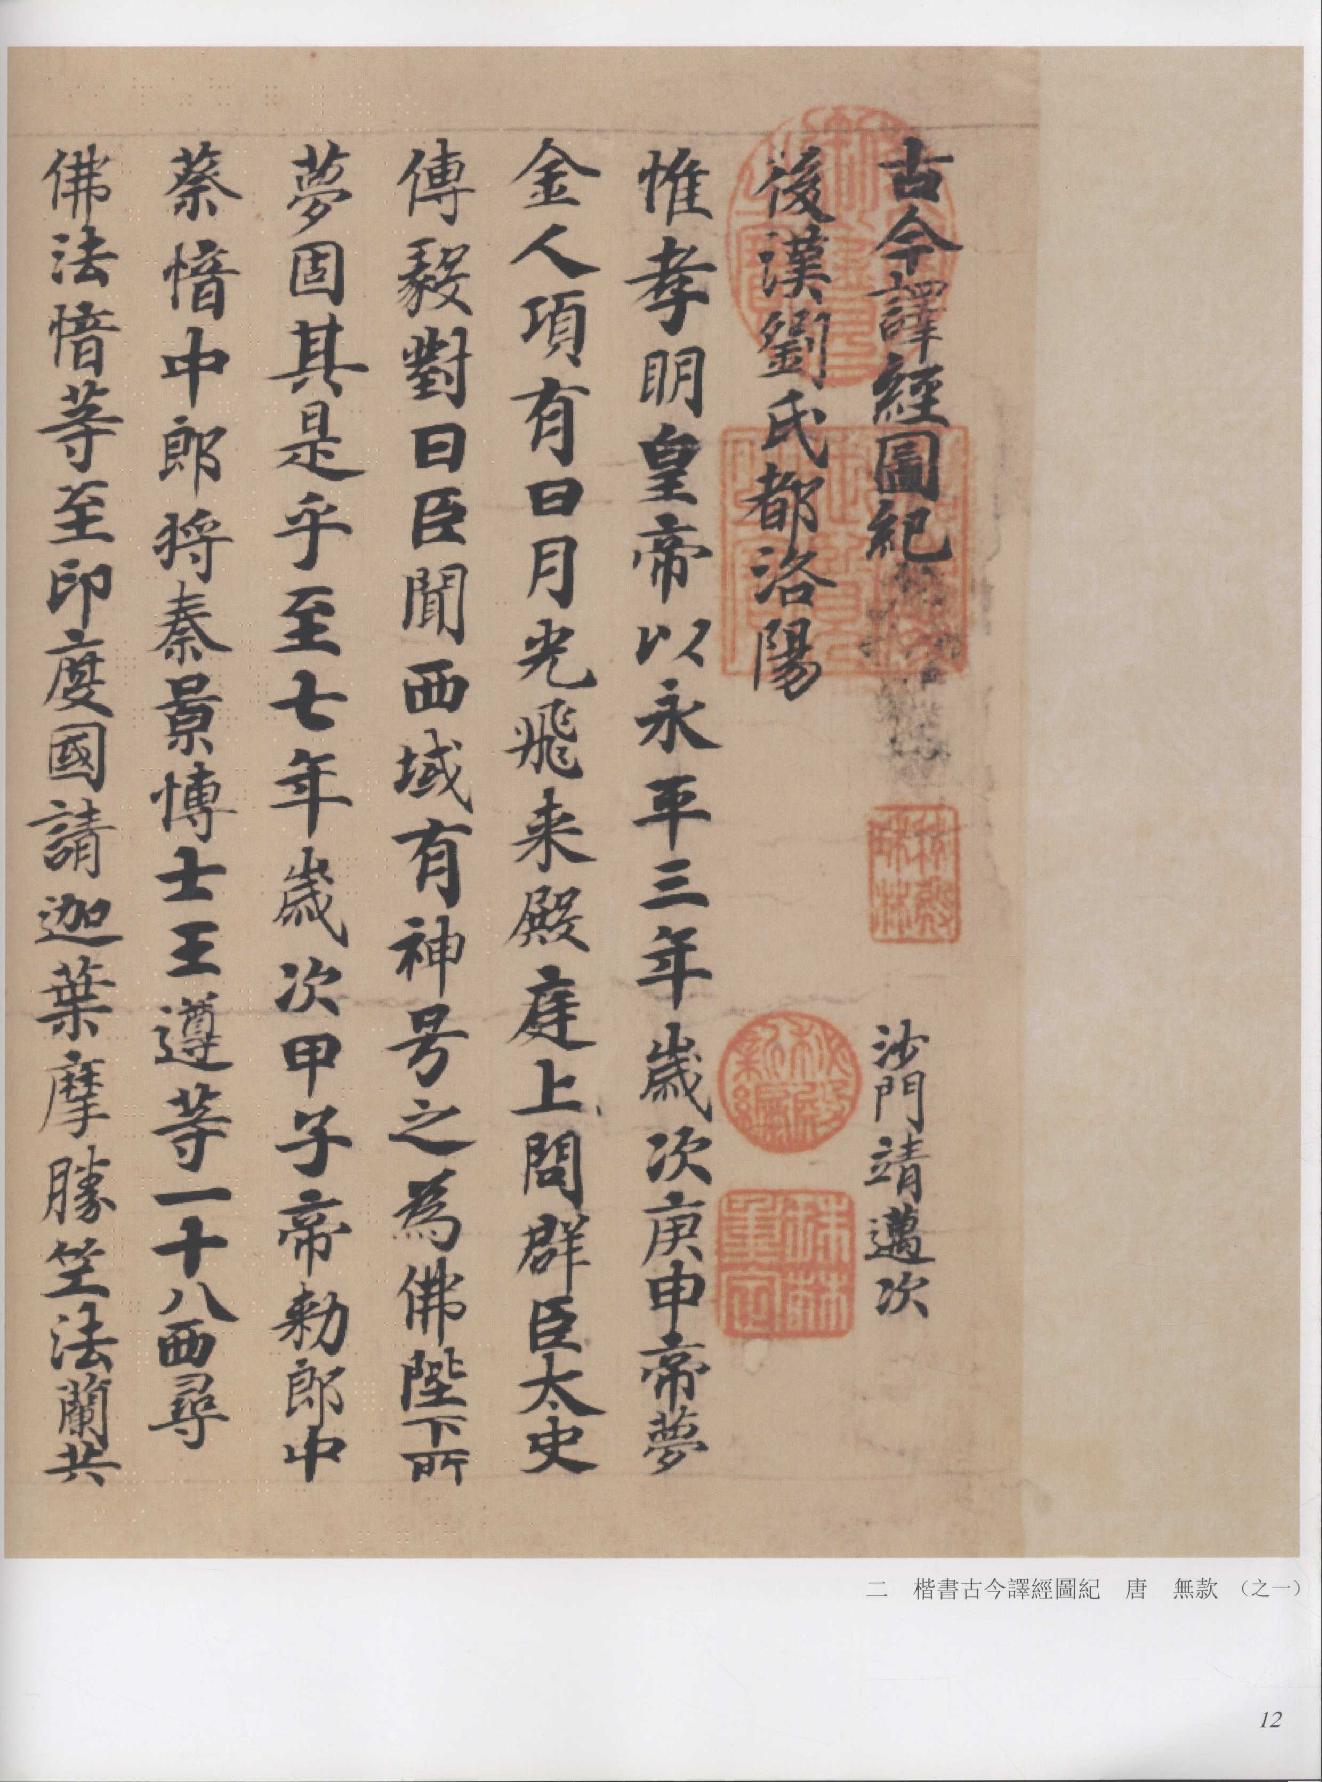 古今譯經圖紀
沙門靖邁次
後漢劉氏都洛陽
惟孝明皇帝以永平三年歲次庚申帝夢
金人項有日月光飛来殿庭上問群臣太史
傅毅對曰臣聞西域有神号之為佛陛下所
夢固其是乎至七年歲次甲子帝勅郎中
蔡愔中郎将秦景博士王遵等一十八西尋
佛法愔等至印度國請迦葉摩勝竺法蘭共
二 楷書古今譯經圖紀 唐 無款 （之一）
12